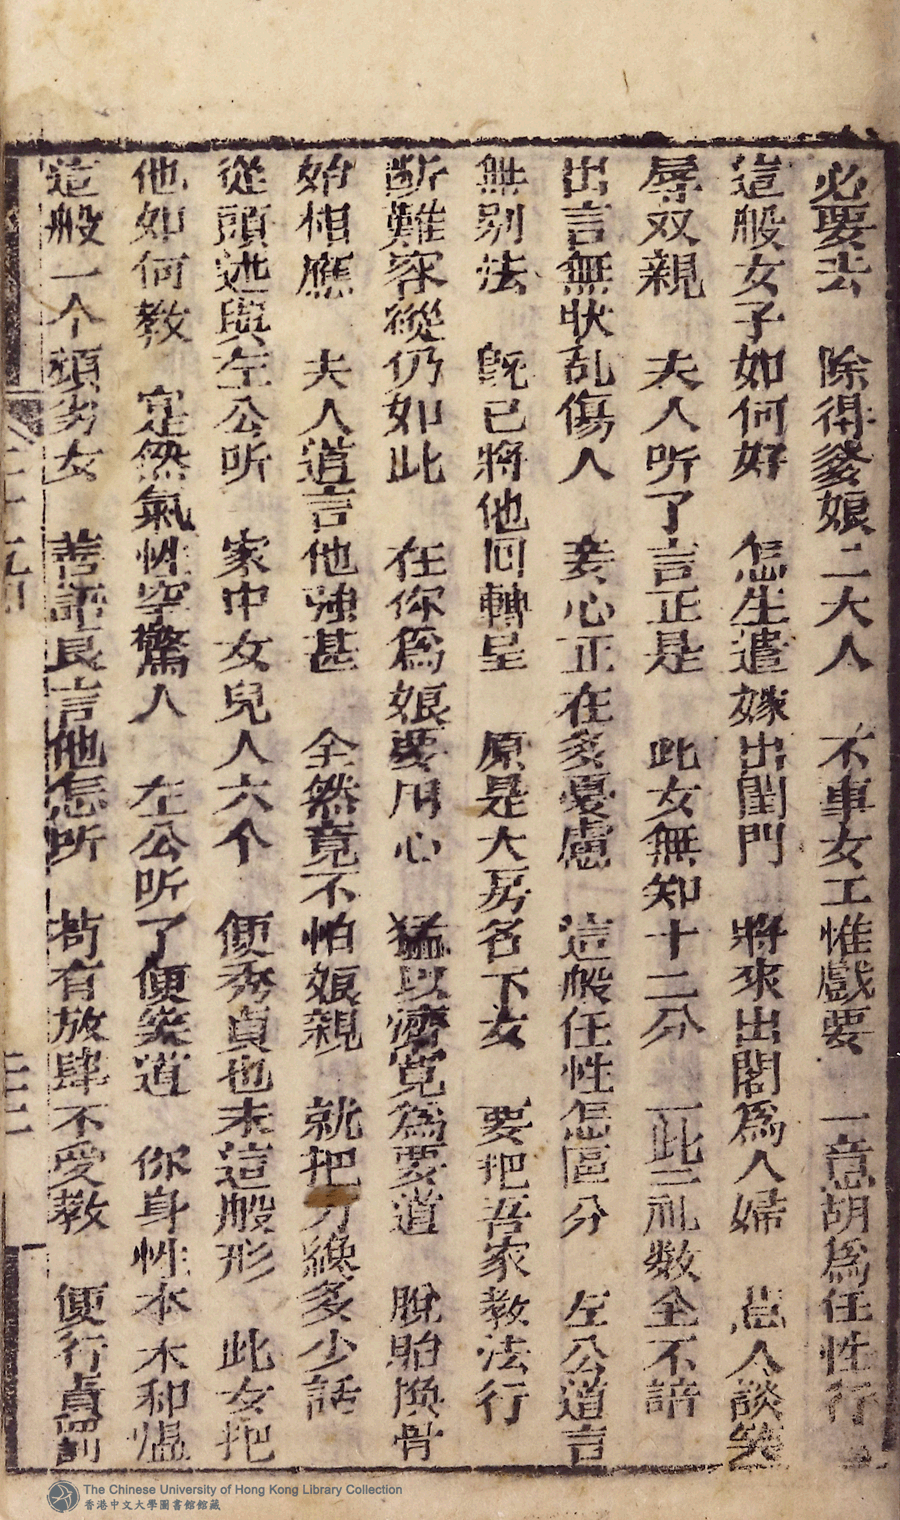 必要去　除得爹娘二大人　不事女工惟戲耍　一意胡為任性行
這般女子如何好　怎生遣嫁出閨門　將來出閣為人婦　人談笑
辱双親　夫人听了言正是　此女無知十二分　此三礼数全不諳
出言無状乱傷人　妾心正在多憂慮　這般任性怎區分　左公道言
無别法　既已將他回轉呈　原是大房名下女　要把吾家教法行
断難容縱仍如此　在你為娘要用心　猛以濟寬為要道　脫胎換骨
始相應　夫人道言他強甚　全然竟不怕娘親　就把方纔多少話
從頭述與左公听　家中女兒人六个　便秀貞也未這般形　此女把
他如何教　定然氣性空驚人　左公听了便笑道　你身性本木和温
這般一个頑劣女　善語良言他怎听　苟有放肆不受教　便行責罰
二十九回
二十二
The Chinese University of Hong Kong Library Collection
香港中文大學圖書館館藏